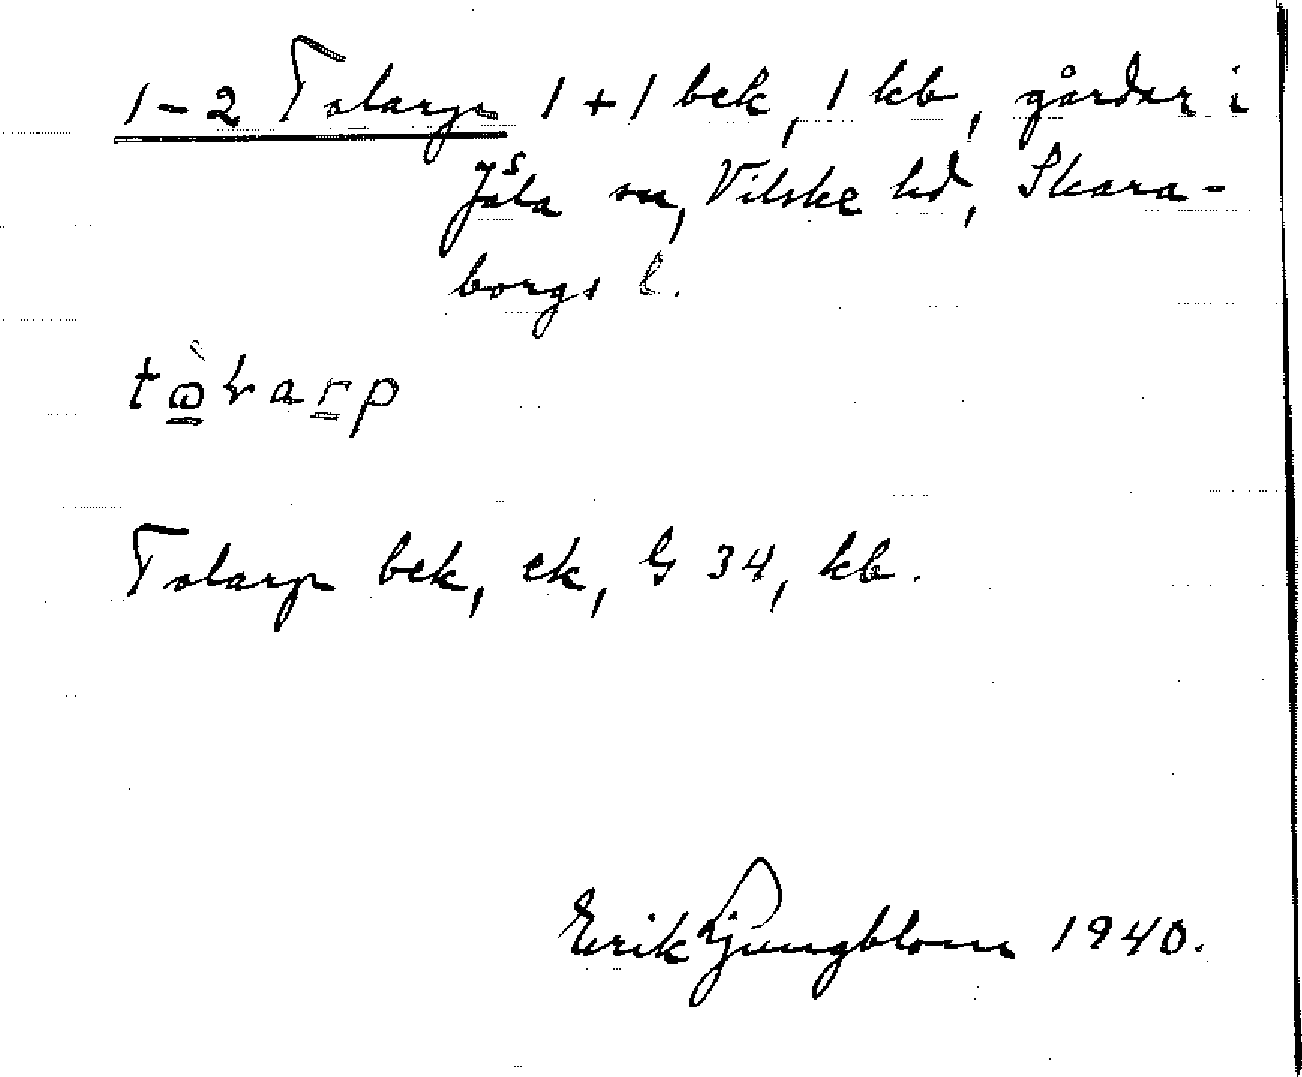 1-2 Tolarp 1+1 bek, 1 kb, gårdar i
Jäla sn, Vilske hd, Skara-
borgs l.
Tolarp bek, ek, G 34, kb.
Erik Ljungblom 1940.